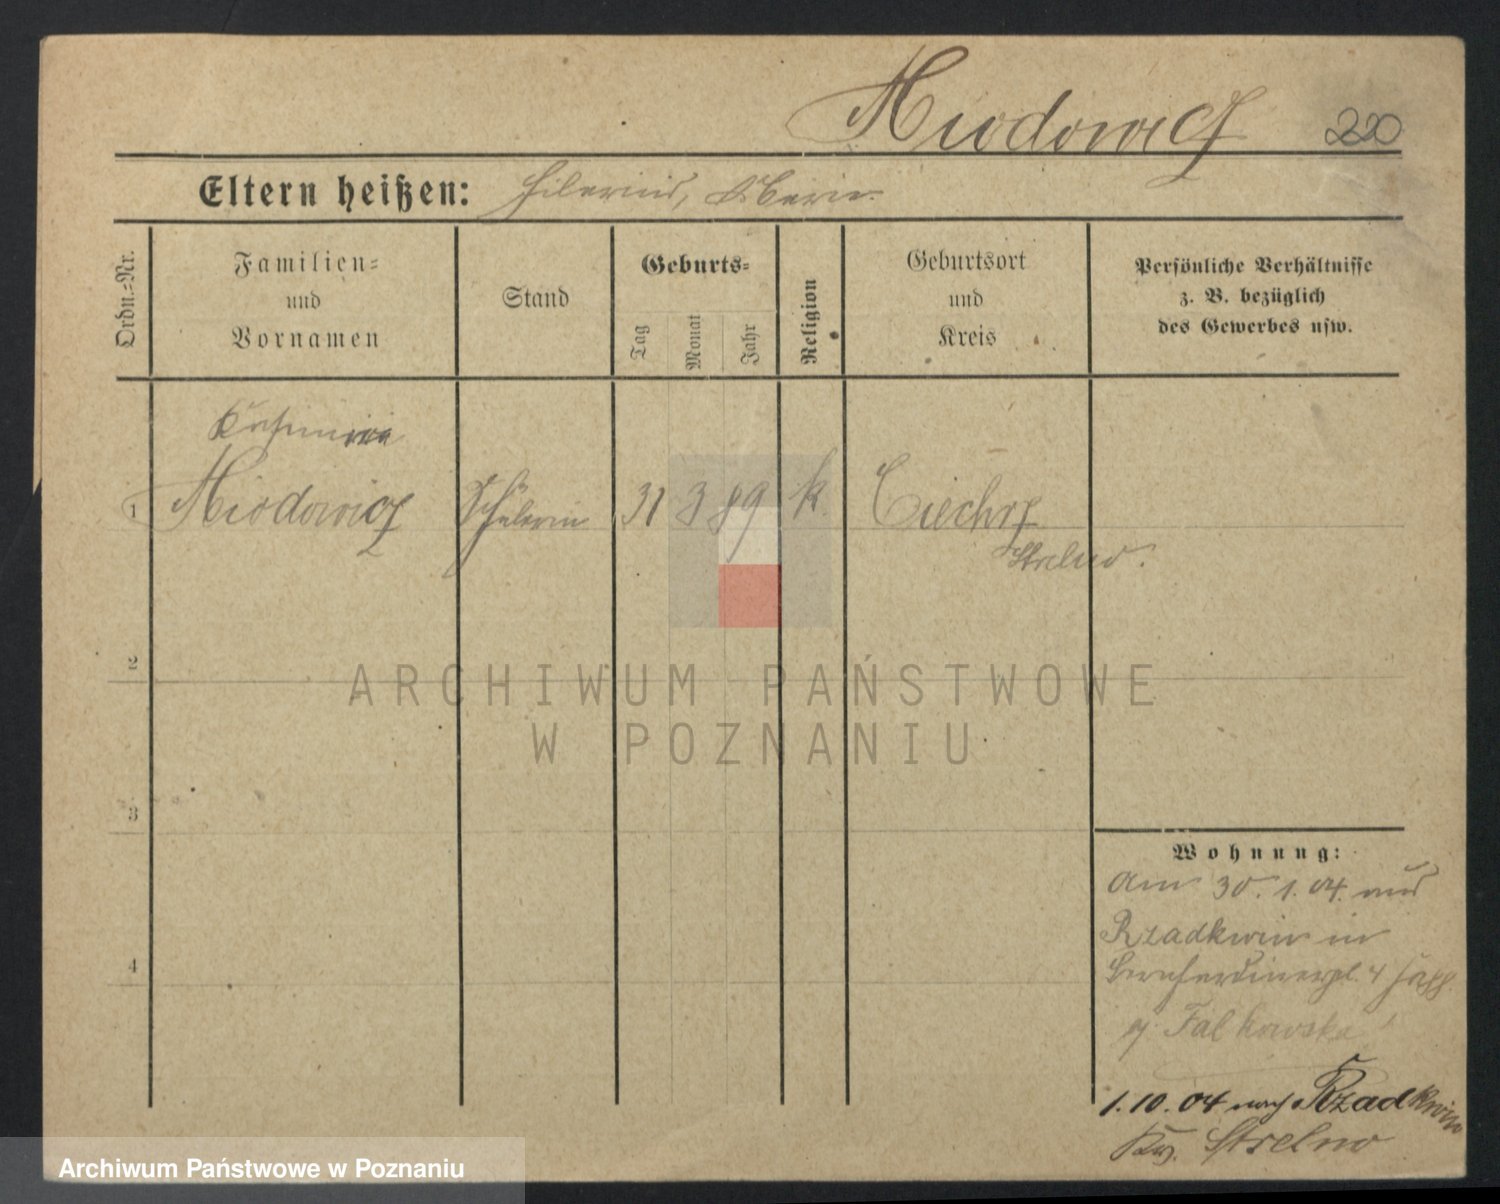 Miodowicz 220
Eltern heißen: Hilarius,
Ordn.=Nr.
Familien=
und
Vornamen
Stand
Geburts=
Tag
Monat
Jahr
Religion
Geburtsort
und
Kreis
Persönliche Verhältnisse
z. B. bezüglich
des Gewerbes usw.
Kasimira
1 Miodowicz Schülerin 31 3 89 k Ciechrz
Strelno.
2
3
4
Wohnung:
Am 30. 1. 04. aus
Rzadkwin in
Bernhardinerpl. 4
Falkowska
1. 10. 04 nach Rzadkwin
Kr. Strelno
ARCHIWUM PAŃSTWOWE
W POZNANIU
Archiwum Państwowe w Poznaniu